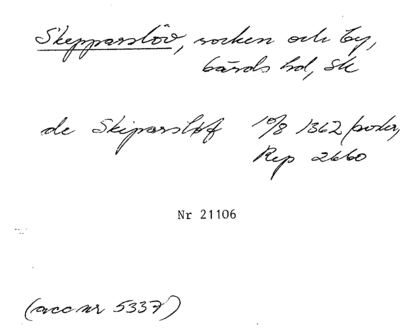 Skepparslöv, socken och by,
Gärds hd, Sk
de Skiparsløf 10/8 1362
Rep 2660
Nr 21106
(acc nr 5337)